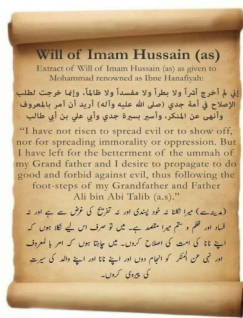 Will of Imam Hussain (as)
Extract of Will of Imam Hussain (as) as given to
Mohammad renowned as Ibne Hanafiyah:
إني لم أخرج أشراً ولا بطراً ولا مفسداً ولا ظالماً، وإنما خرجت لطلب
الإصلاح في أمة جدي (صلى الله عليه وآله) أريد أن أمر بالمعروف
وأنهى عن المنكر، وأسير بسيرة جدي وأبي علي بن أبي طالب
“I have not risen to spread evil or to show off,
nor for spreading immorality or oppression. But
I have left for the betterment of the ummah of
my Grand father and I desire to propagate to do
good and forbid against evil, thus following the
foot-steps of my Grandfather and Father
Ali bin Abi Talib (a.s).”
(مدینہ سے) میرا نکلنا نہ خود پسندی اور نہ تفریح کی غرض سے ہے اور نہ
فساد اور ظلم و ستم میرا مقصد ہے۔ میں تو صرف اس لیے نکلا ہوں کہ
اپنے نانا کی امت کی اصلاح کروں۔ میں چاہتا ہوں کہ امر بالمعروف
اور نہی عن المنکر کو انجام دوں اور اپنے نانا اور اپنے والد کی سیرت
کی پیروی کروں۔